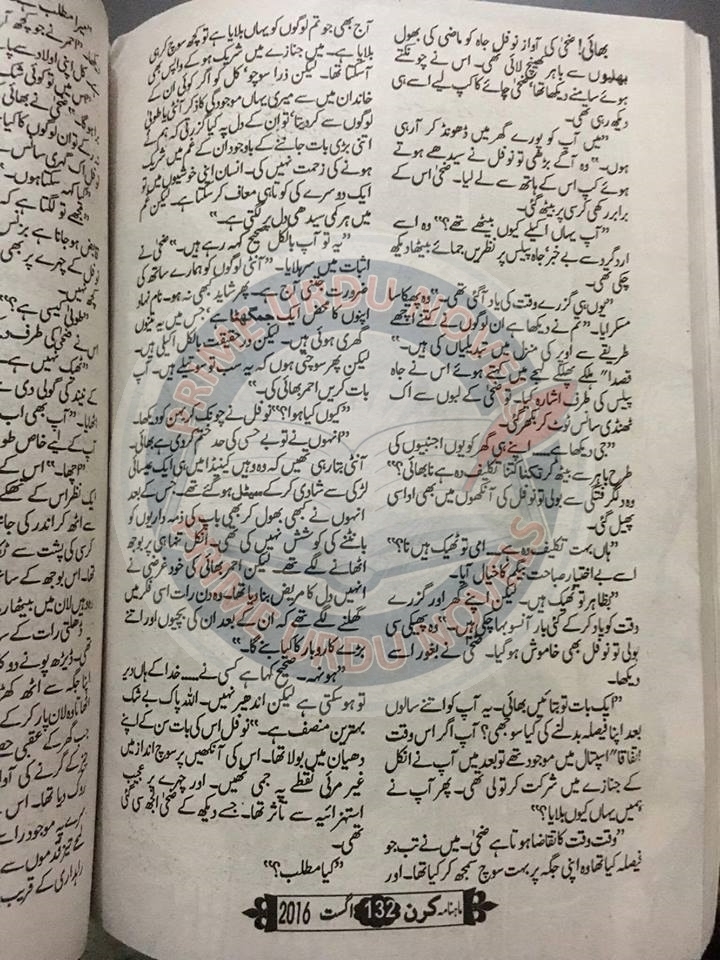 بھائی! ضحیٰ کی آواز نوفل جاہ کو ماضی کی بھول
بھلیوں سے باہر کھینچ لائی تھی۔ اس نے چونکتے
ہوئے سامنے دیکھا تھا، ضحیٰ چائے کا کپ لیے اسے ہی
دیکھ رہی تھی۔
”میں آپ کو پورے گھر میں ڈھونڈ کر آرہی
ہوں۔“ وہ آگے بڑھی تو نوفل نے سیدھے ہوتے
ہوئے کپ اس کے ہاتھ سے لے لیا۔ ضحیٰ اس کے
برابر رکھی کرسی پر بیٹھ گئی۔
”آپ یہاں اکیلے کیوں بیٹھے تھے؟“ وہ اسے
اردگرد سے بے خبر ’جاہ پیلس پر نظریں جمائے بیٹھا دیکھ
چکی تھی۔
”یوں ہی گزرے وقت کی یاد آگئی تھی۔“ وہ پھیکا سا
مسکرایا۔ ”تم نے دیکھا ہے ان لوگوں نے کتنے اچھے
طریقے سے اوپر کی منزل میں تبدیلیاں کی ہیں۔“
قصدا” ہلکے پھلکے لہجے میں کہتے ہوئے اس نے جاہ
پیلس کی طرف اشارہ کیا۔ تو ضحیٰ کے لبوں سے اک
ٹھنڈی سانس ٹوٹ کر بکھر گئی۔
”جی دیکھا ہے۔۔۔ اپنے ہی گھر کو یوں اجنبیوں کی
طرح باہر سے بیٹھ کر تکنا کتنا تکلیف دہ ہے نا بھائی؟“
وہ دلگرفتگی سے بولی تو نوفل کی آنکھوں میں بھی اداسی
پھیل گئی۔
”ہاں بہت تکلیف دہ ہے۔۔۔ امی تو ٹھیک ہیں نا؟“
اسے بے اختیار صباحت بیگم کا خیال آیا۔
”بظاہر تو ٹھیک ہیں۔ لیکن اپنے گھر اور گزرے
وقت کو یاد کر کے کئی بار آنسو بہا چکی ہیں۔“ وہ پھیکی سی
بولی تو نوفل بھی خاموش ہوگیا۔ ضحیٰ نے بغور اسے
دیکھا۔
”ایک بات تو بتائیں بھائی۔ یہ آپ کو اتنے سالوں
بعد اپنا فیصلہ بدلنے کی کیا سوجھی؟ آپ اگر اس وقت
اتفاقا“ اسپتال میں موجود تھے تو بعد میں آپ نے انکل
کے جنازے میں شرکت کر تو لی تھی۔ پھر آپ نے
ہمیں یہاں کیوں بلایا؟“
”وقت وقت کا تقاضا ہوتا ہے ضحیٰ۔ میں نے تب جو
فیصلہ کیا تھا وہ اپنی جگہ پر بہت سوچ سمجھ کر کیا تھا۔ اور
آج بھی جو تم لوگوں کو یہاں بلایا ہے تو کچھ سوچ کر ہی
بلایا ہے۔ میں جنازے میں شریک ہو کے واپس بھی
آسکتا تھا۔ لیکن ذرا سوچو ’کل کو اگر کوئی ان کے
خاندان میں سے میری یہاں موجودگی کا ذکر آنٹی یا طوبیٰ
لوگوں سے کردیتا ’تو ان کے دل پہ کیا گزرتی کہ ہم نے
اتنی بڑی بات جاننے کے باوجود ان کے غم میں شریک
ہونے کی زحمت نہیں کی۔ انسان اپنی خوشیوں میں تو
ایک دوسرے کی کوتاہی معاف کر سکتا ہے۔ لیکن غم
میں ہر کمی سیدھی دل پر لگتی ہے۔“
”یہ تو آپ بالکل صحیح کہہ رہے ہیں۔“ ضحیٰ نے
اثبات میں سرہلایا۔ ”آنٹی لوگوں کو ہمارے ساتھ کی
ضرورت جتنی آج ہے۔ پھر شاید کبھی نہ ہو۔ نام نہاد
اپنوں کا محض ایک جمگھٹا ہے ’جس میں یہ تینوں
گھری ہوئی ہیں۔ لیکن درحقیقت بالکل اکیلی ہیں۔
لیکن پھر سوچتی ہوں کہ یہ سب تو سوتیلے ہیں۔ آپ
بات کریں احمر بھائی کی۔“
”کیوں کیا ہوا؟“ نوفل نے چونک کر بہن کو دیکھا۔
”انہوں نے تو بے حسی کی حد ختم کردی ہے بھائی۔
آنٹی بتا رہی تھیں کہ وہ وہیں کینیڈا میں ہی ایک عیسائی
لڑکی سے شادی کر کے سیٹل ہوگئے تھے۔ جس کے بعد
انہوں نے کبھی بھول کر بھی باپ کی ذمہ داریوں کو
بانٹنے کی کوشش نہیں کی تھی۔ انکل تنہا ہی ہر بوجھ
اٹھانے لگے تھے۔ لیکن احمر بھائی کی خود غرضی نے
انہیں دل کا مریض بنا دیا تھا۔ وہ دن رات اسی فکر میں
گھلنے لگے تھے کہ ان کے بعد ان کی بچیوں اور اتنے
بڑے کاروبار کا کیا بنے گا۔“
”ہونہہ۔ صحیح کہا ہے کسی نے۔۔۔۔ خدا کے ہاں دیر
تو ہوسکتی ہے لیکن اندھیر نہیں۔ اللہ پاک بے شک
بہترین منصف ہے۔“ نوفل اس کی بات سن کے اپنے
دھیان میں بولا تھا۔ اس کی آنکھیں پر سوچ انداز میں
غیر مرئی نقطے پہ جمی تھیں۔ اور چہرے پر عجیب
استہزائیہ سے تاثر تھا۔ جسے دیکھ کے ضحیٰ الجھ سی گئی
تھی۔
”کیا مطلب؟“
ماہنامہ کرن 132 اگست 2016
PRIME URDU NOVELS
PRIME URDU NOVELS